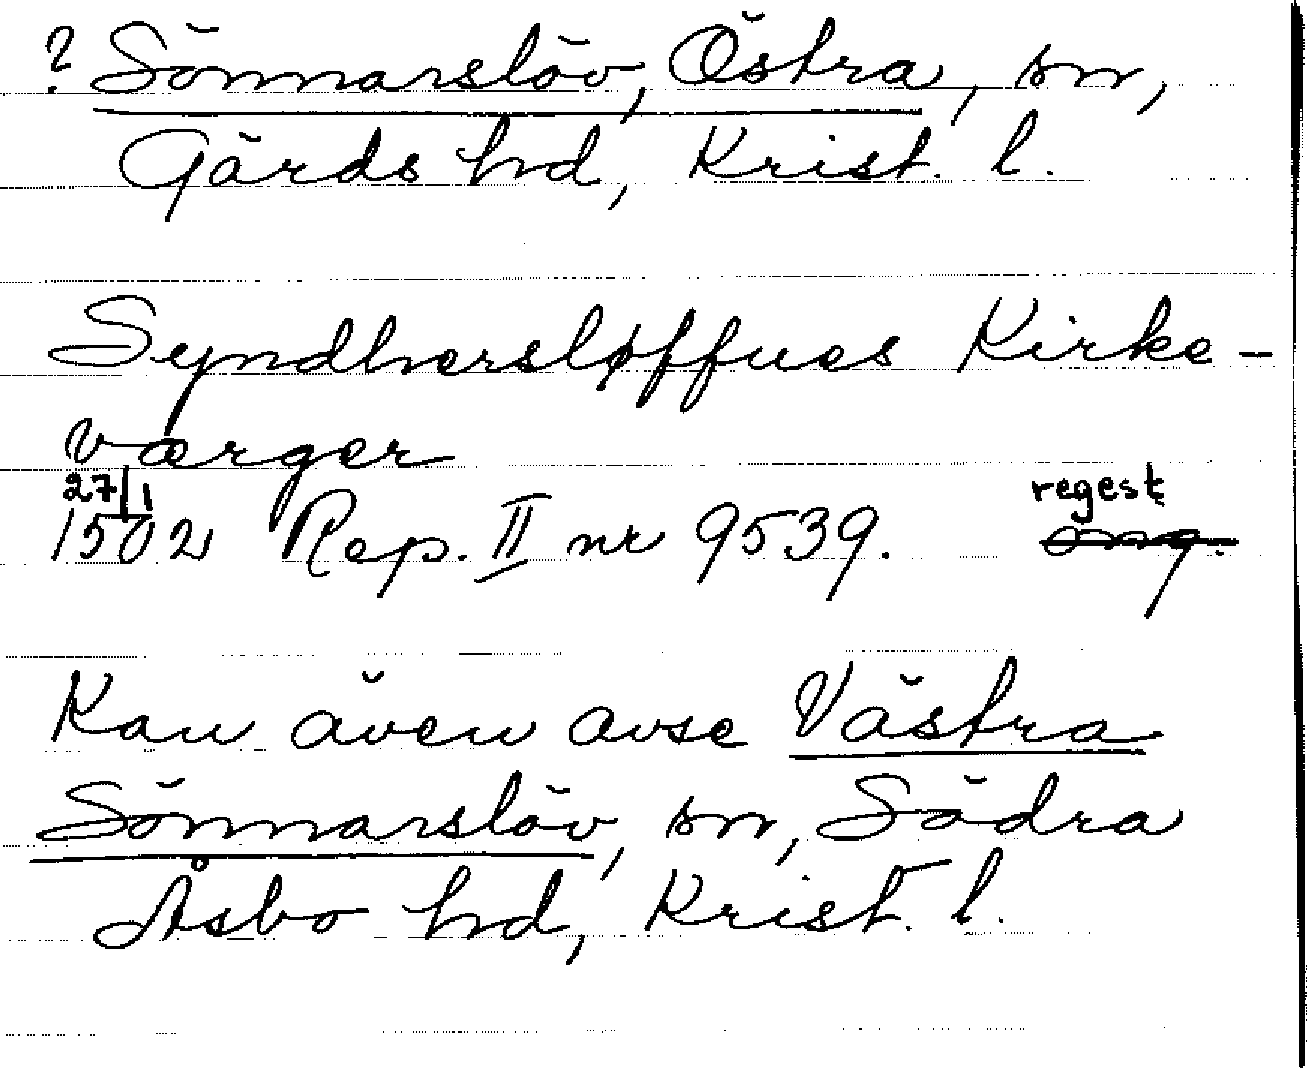 ? Sönnarslöv, Östra, sn,
Gärds hd, Krist. l.
Syndhersløffues Kirke-
værger
27/1 regest
1502 Rep. II nr 9539.
Kan även avse Västra
Sönnarslöv, sn, Södra
Åsbo hd, Krist. l.